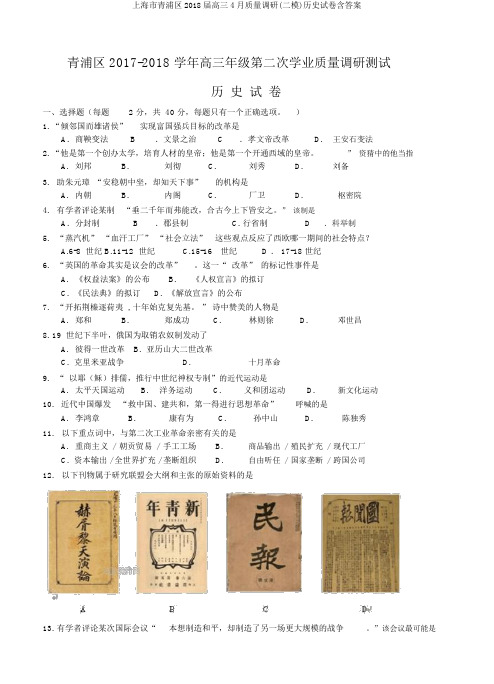 上海市青浦区2018届高三4月质量调研(二模)历史试卷含答案
青浦区 2017-2018 学年高三年级第二次学业质量调研测试
历 史 试 卷
一、选择题（每题 2 分，共 40 分，每题只有一个正确选项。 ）
1. “倾邻国而雄诸侯” 实现富国强兵目标的改革是
A．商鞅变法 B ．文景之治 C ．孝文帝改革 D． 王安石变法
2. “他是第一个创办太学，培育人材的皇帝；他是第一个开通西域的皇帝。 ” 资猜中的他当指
A．刘邦 B． 刘彻 C． 刘秀 D． 刘备
3. 助朱元璋 “安稳朝中坐，却知天下事” 的机构是
A．内朝 B． 内阁 C． 厂卫 D． 枢密院
4. 有学者评论某制 “垂二千年而弗能改，合古今上下皆安之。” 该制是
A．分封制 B ．郡县制 C．行省制 D ．科举制
5. “蒸汽机” “血汗工厂” “社会立法” 这些观点反应了西欧哪一期间的社会特点？
A.6-8 世纪 B.11-12 世纪 C.15-16 世纪 D ．17-18 世纪
6. “英国的革命其实是议会的改革” 。这一“ 改革” 的标记性事件是
A．《权益法案》的公布 B． 《人权宣言》的拟订
C．《民法典》的拟订 D．《解放宣言》的公布
7. “开拓荆榛逐荷夷 ,十年始克复先基。 ” 诗中赞美的人物是
A．郑和 B． 郑成功 C． 林则徐 D． 邓世昌
8.19 世纪下半叶，俄国为取销农奴制发动了
A．彼得一世改革 B．亚历山大二世改革
C．克里米亚战争 D． 十月革命
9. “ 以耶（稣）排儒，推行中世纪神权专制”的近代运动是
A．太平天国运动 B． 洋务运动 C． 义和团运动 D． 新文化运动
10. 近代中国爆发 “救中国、建共和，第一得进行思想革命” 呼喊的是
A．李鸿章 B． 康有为 C． 孙中山 D． 陈独秀
11. 以下重点词中，与第二次工业革命亲密有关的是
A．重商主义 / 朝贡贸易 / 手工工场 B． 商品输出 / 殖民扩充 / 现代工厂
C．资本输出 / 全世界扩充 / 垄断组织 D． 自由听任 / 国家垄断 / 跨国公司
12. 以下刊物属于研究联盟会大纲和主张的原始资料的是
赫胥黎天演論
新青年
民報
國聞報
A B C D
13. 有学者评论某次国际会议“ 本想制造和平，却制造了另一场更大规模的战争 。”该会议最可能是